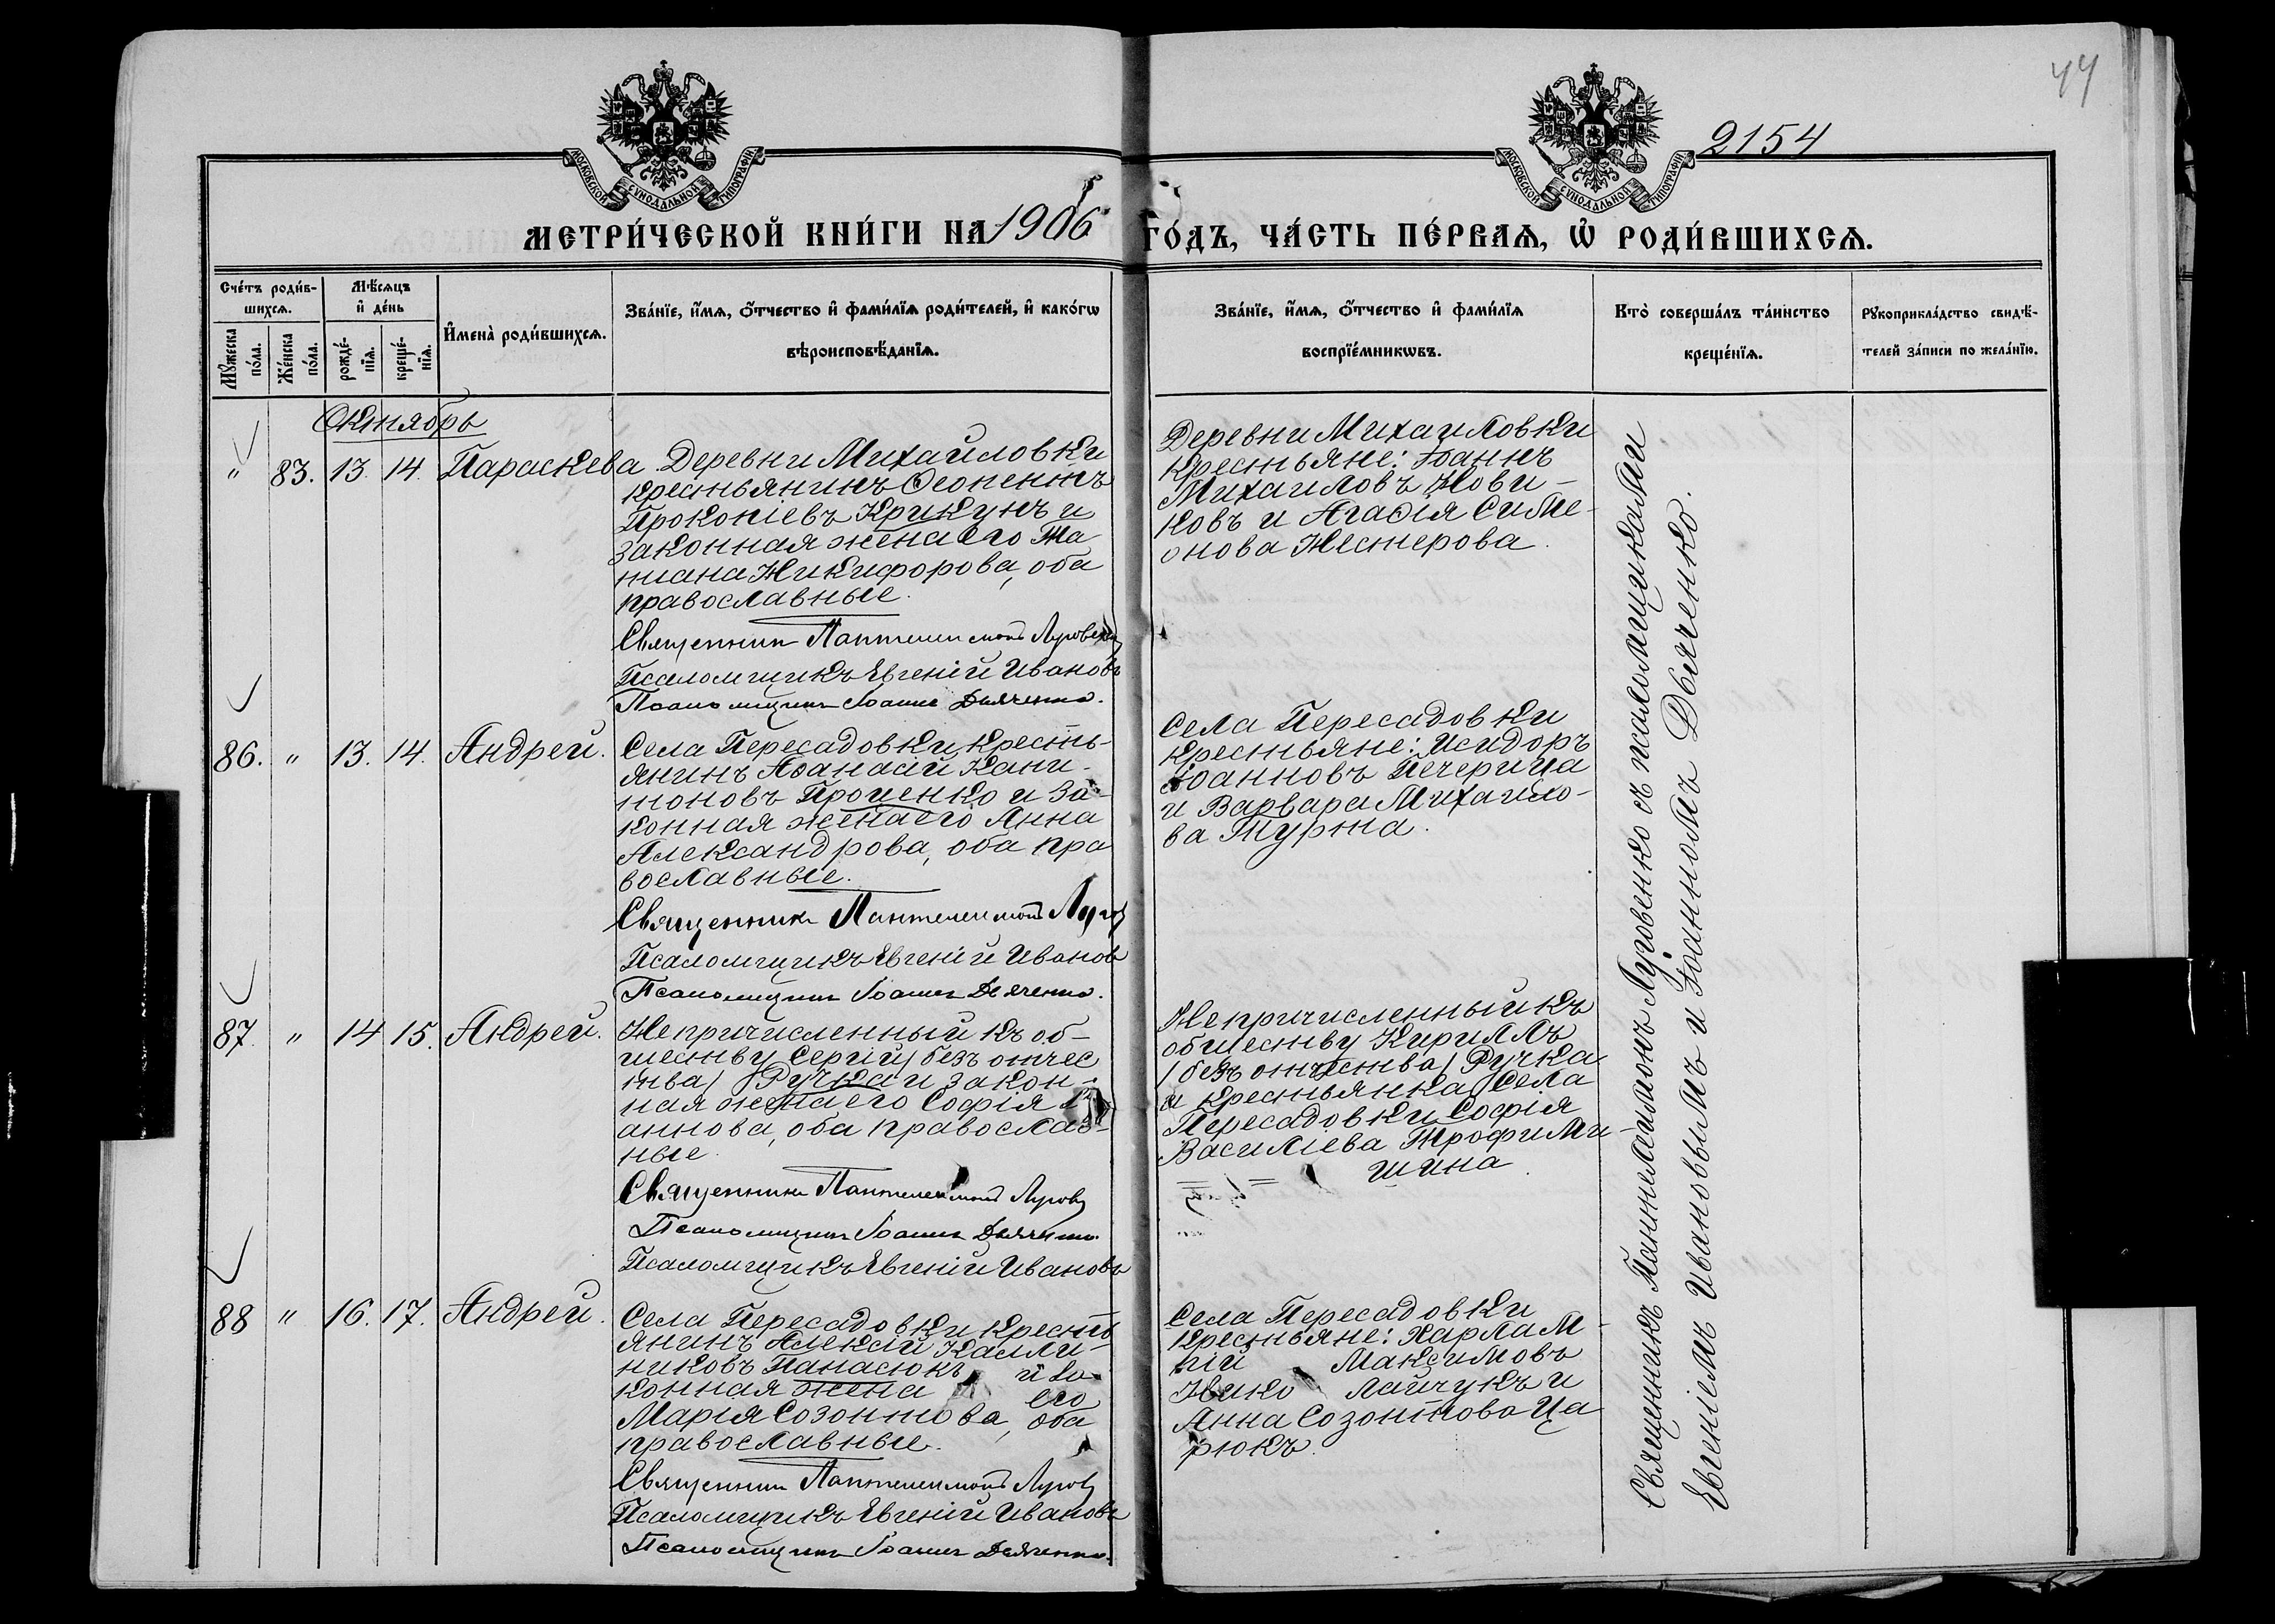 44
2154
МОСКОВСКОЙ СУНОДАЛЬНОЙ ТИПОГРАФІИ
МОСКОВСКОЙ СУНОДАЛЬНОЙ ТИПОГРАФІИ
МЕТРИ́ЧЕСКОЙ КНИ́ГИ НА 1906 ГО́ДЪ, ЧА́СТЬ ПЕ́РВАѦ, Ѡ҆ РОДИ́ВШИХСѦ.
Сче́тъ роди́в-
шихсѧ.
Мꙋ́жеска
по́ла.
Же́нска
по́ла.
Мѣ́сѧцъ
и҆ де́нь
рожде́-
нїѧ.
креще́-
нїѧ.
И҆мена̀ роди́вшихсѧ.
Зва́нїе, и҆́мѧ, ѻ҆́тчество и҆ фами́лїѧ роди́телей, и҆ како́гѡ
вѣроисповѣ́данїѧ.
Зва́нїе, и҆́мѧ, ѻ҆́тчество и҆ фами́лїѧ
воспрїе́мникѡвъ.
Кто̀ соверша́лъ та́инство
креще́нїѧ.
Рꙋкоприкла́дство свидѣ́-
телей за́писи по жела́нїю.
Октябрь
" 83. 13. 14. Параскева
Деревни Михайловки
крестьянинъ Ѳеопентъ
Прокопіевъ Крикунъ и
законная жена его Та
тіана Никифорова, оба
православные.
Священник Пантелеимонъ
Псаломщикъ Евгеній Ивановъ
Псаломщикъ Іоаннъ Дьяченко.
Деревни Михаиловки
крестьяне: Іоаннъ
Михаиловъ Нови-
ковъ и Агаѳія Симе-
онова Нестерова.
86. " 13. 14. Андрей.
Села Пересадовки кресть-
янинъ Аѳанасій Капи-
тоновъ Проценко и За-
конная жена его Анна
Александрова, оба пра
вославные.
Священникъ Пантелеимонъ
Псаломщикъ Евгеній Ивановъ
Псаломщикъ Іоаннъ Дьяченко.
Села Пересадовки
крестьяне: Исидоръ
Іоанновъ Печерица
и Варвара Михаило-
ва Турта.
87. " 14 15. Андрей.
Непричисленный къ об-
ществу Сергій / безъ отчес
тва / Ручка и закон-
ная жена его Софія
аннова, оба православ-
ные
Священникъ Пантелеимонъ
Псаломщикъ Іоаннъ Дьяченко.
Псаломщикъ Евгеній Ивановъ
Непричисленный къ
обществу Кириллъ
/ безъ отчества / Ручка
и крестьянка Села
Пересадовки Софія
Василіева Трофими-
шина.
88 " 16. 17. Андрей.
Села Пересадовки кресть
янинъ Алексій Калли-
никовъ Панасюкъ и За-
конная жена его
Марія Созонтова, оба
православные.
Священник Пантелеимонъ
Псаломщикъ Евгеній Ивановъ
Псаломщикъ Іоаннъ Дьяченко.
Села Пересадовки
крестьяне: Харлам-
пій Максимовъ
лайчукъ и
Анна Созонтова Ца
рюкъ.
Священникъ Пантелеимонъ Луговенко съ псаломщиками
Евгеніемъ Ивановымъ и Іоанномъ Дьяченко.